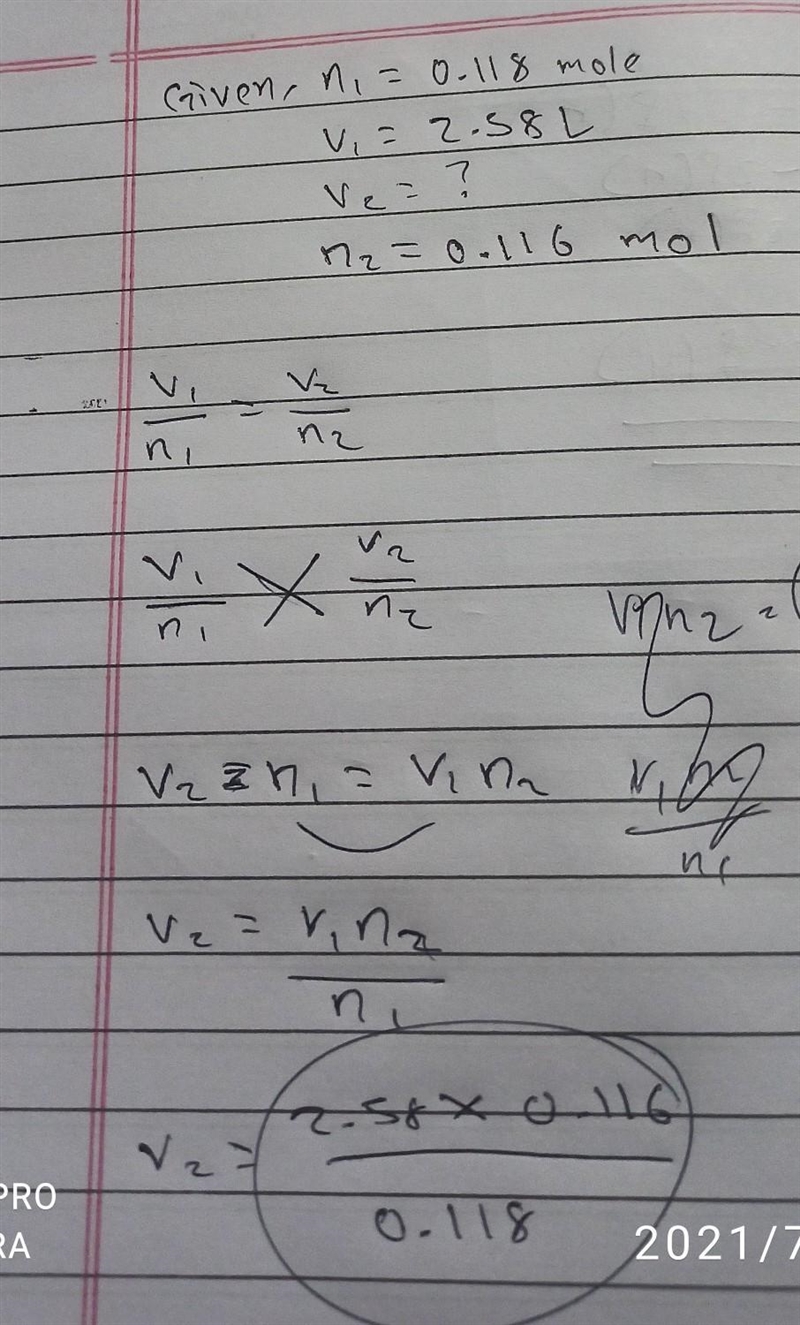 Given, n₁ = 0.118 mole
V₁ = 2.58 L
V₂ = ?
n₂ = 0.116 mol
V₁/n₁ = V₂/n₂
V₁/n₁ X V₂/n₂
V₂ n₁ = V₁ n₂
n₂ =
V₁
n₁
V₂ = V₁ n₂ / n₁
V₂ = 2.58 x 0.116 / 0.118
PRO
RA
2021/7